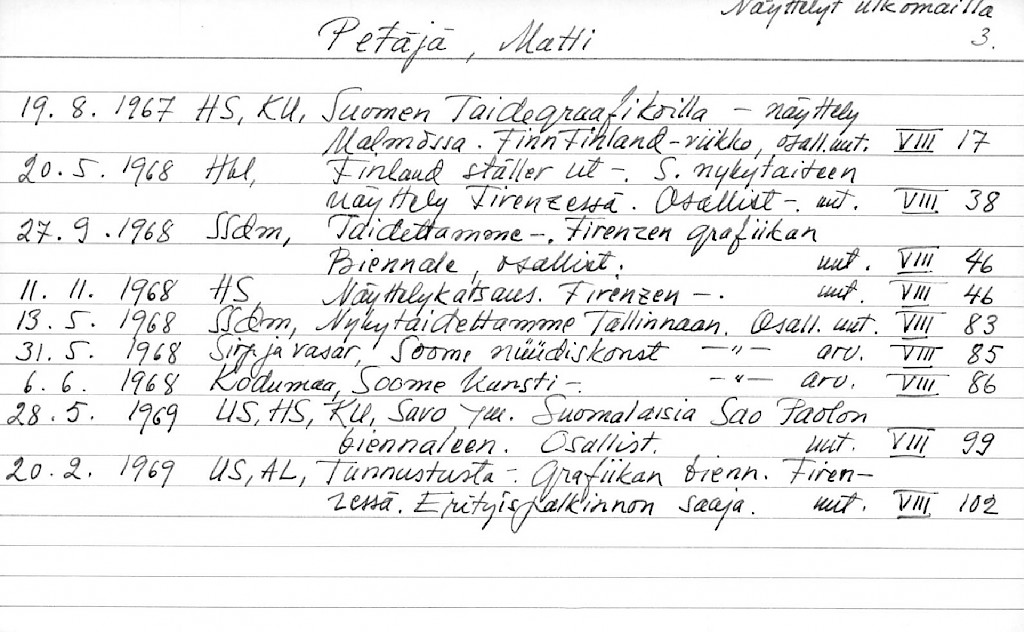 Näyttelyt ulkomailla
3.
Petäjä, Matti
19. 8. 1967 HS, KU, Suomen Taidegraafikoilla - näyttely
Malmössa. FinnFinland-viikko, osall. uut. VIII 17
20. 5. 1968 Hbl, Finland ställer ut -. S. nykytaiteen
näyttely Firenzessä. Osallist -. uut. VIII 38
27. 9. 1968 SSdm, Taidettamme -. Firenzen grafiikan
Biennale, osallist. uut. VIII 46
11. 11. 1968 HS, Näyttelykatsaus. Firenzen -. uut. VIII 46
13. 5. 1968 SSdm, Nykytaidettamme Tallinnaan. Osall. uut. VIII 83
31. 5. 1968 Sirp ja vasar, Soome nüüdiskunst -"- arv. VIII 85
6. 6. 1968 Kodumaa, Soome kunsti - -"- arv. VIII 86
28. 5. 1969 US, HS, KU, Savo ym. Suomalaisia Sao Paolon
biennaleen. Osallist. uut. VIII 99
20. 2. 1969 US, AL, Tunnustusta -. Grafiikan bienn. Firen-
zessä. Erityispalkinnon saaja. uut. VIII 102